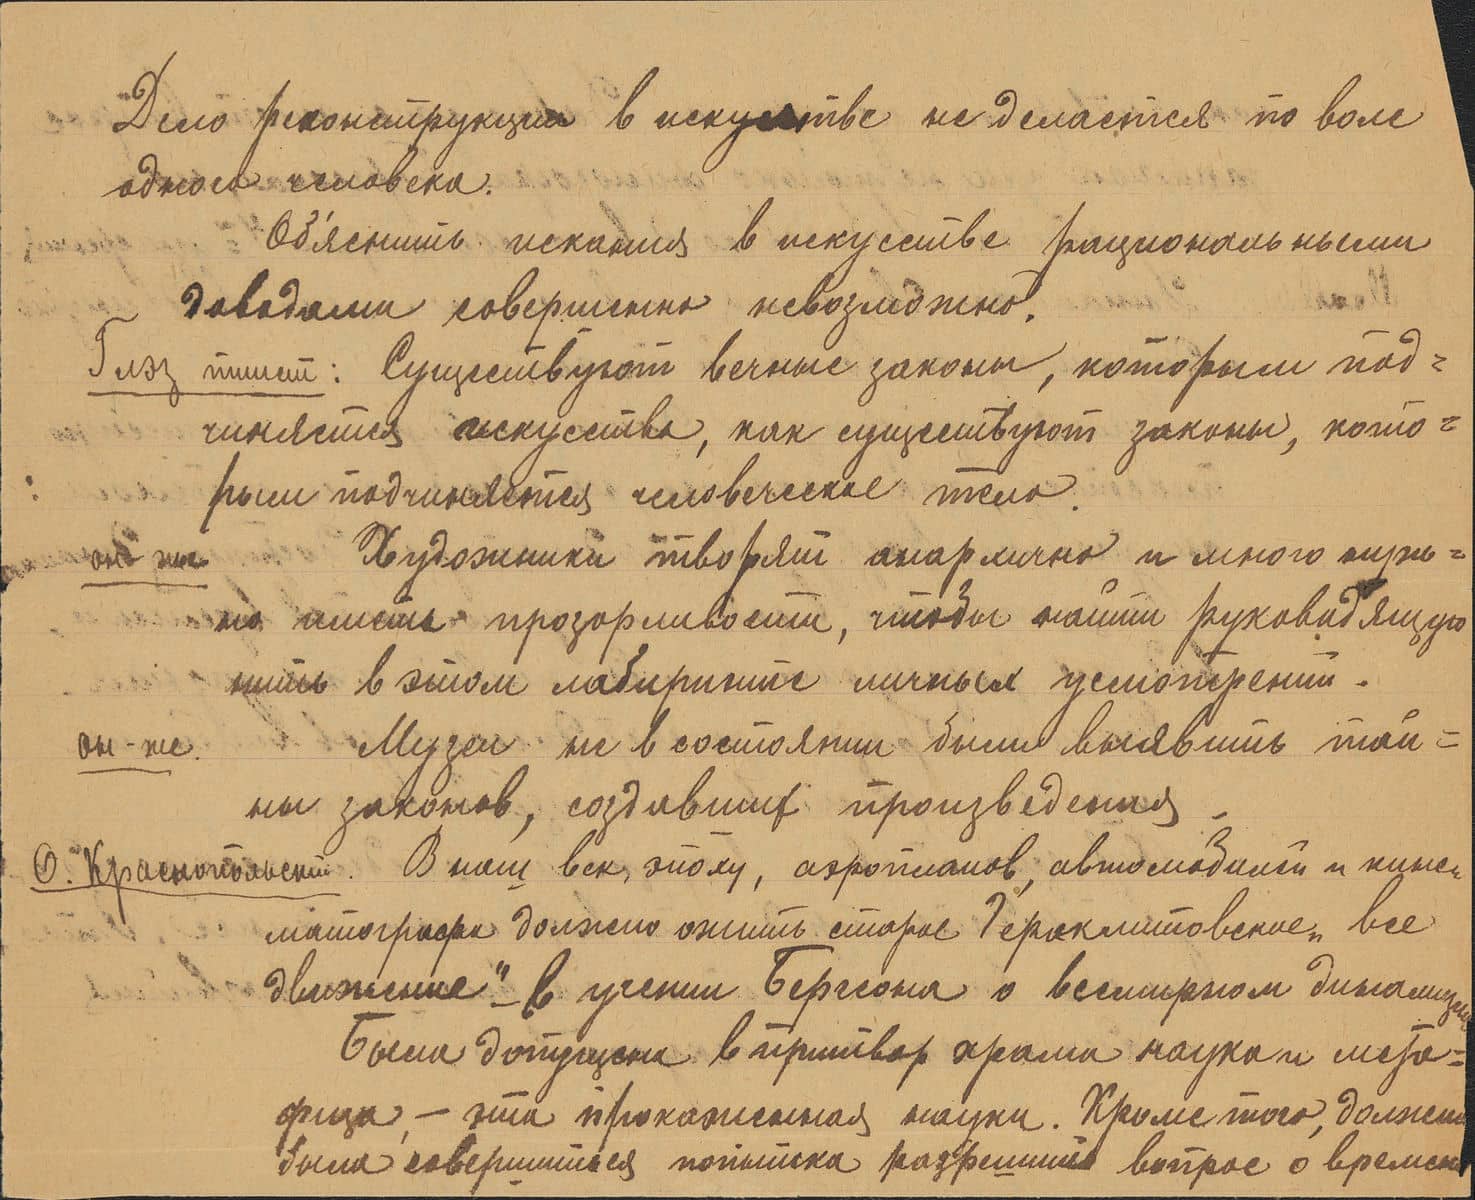 Дело реконструкции в искусстве не делается по воле
одного человека.
Объяснить искания в искусстве рациональными
доводами совершенно невозможно.
Глэз пишет: Существуют вечные законы, которым под=
чиняется искусство, как существуют законы, кото=
рым подчиняется человеческое тело.
он же Художники творят анархично и много нуж=
но иметь прозорливости, чтобы найти руководящую
нить в этом лабиринте личных усмотрений.
он-же. Музеи не в состоянии были выявить тай=
ны законов, создавших произведения.
О. Краснопольский. В наш век, эпоху, аэропланов, автомобилей и кине=
матографа должно ожить старое Гераклитовское „все
движение" – в учении Бергсона о всемирном динамизме
Была допущена в притвор храма наука и мета=
физа, – эта прокаженная науки. Кроме того, должна
была совершиться попытка разрешить вопрос о времени